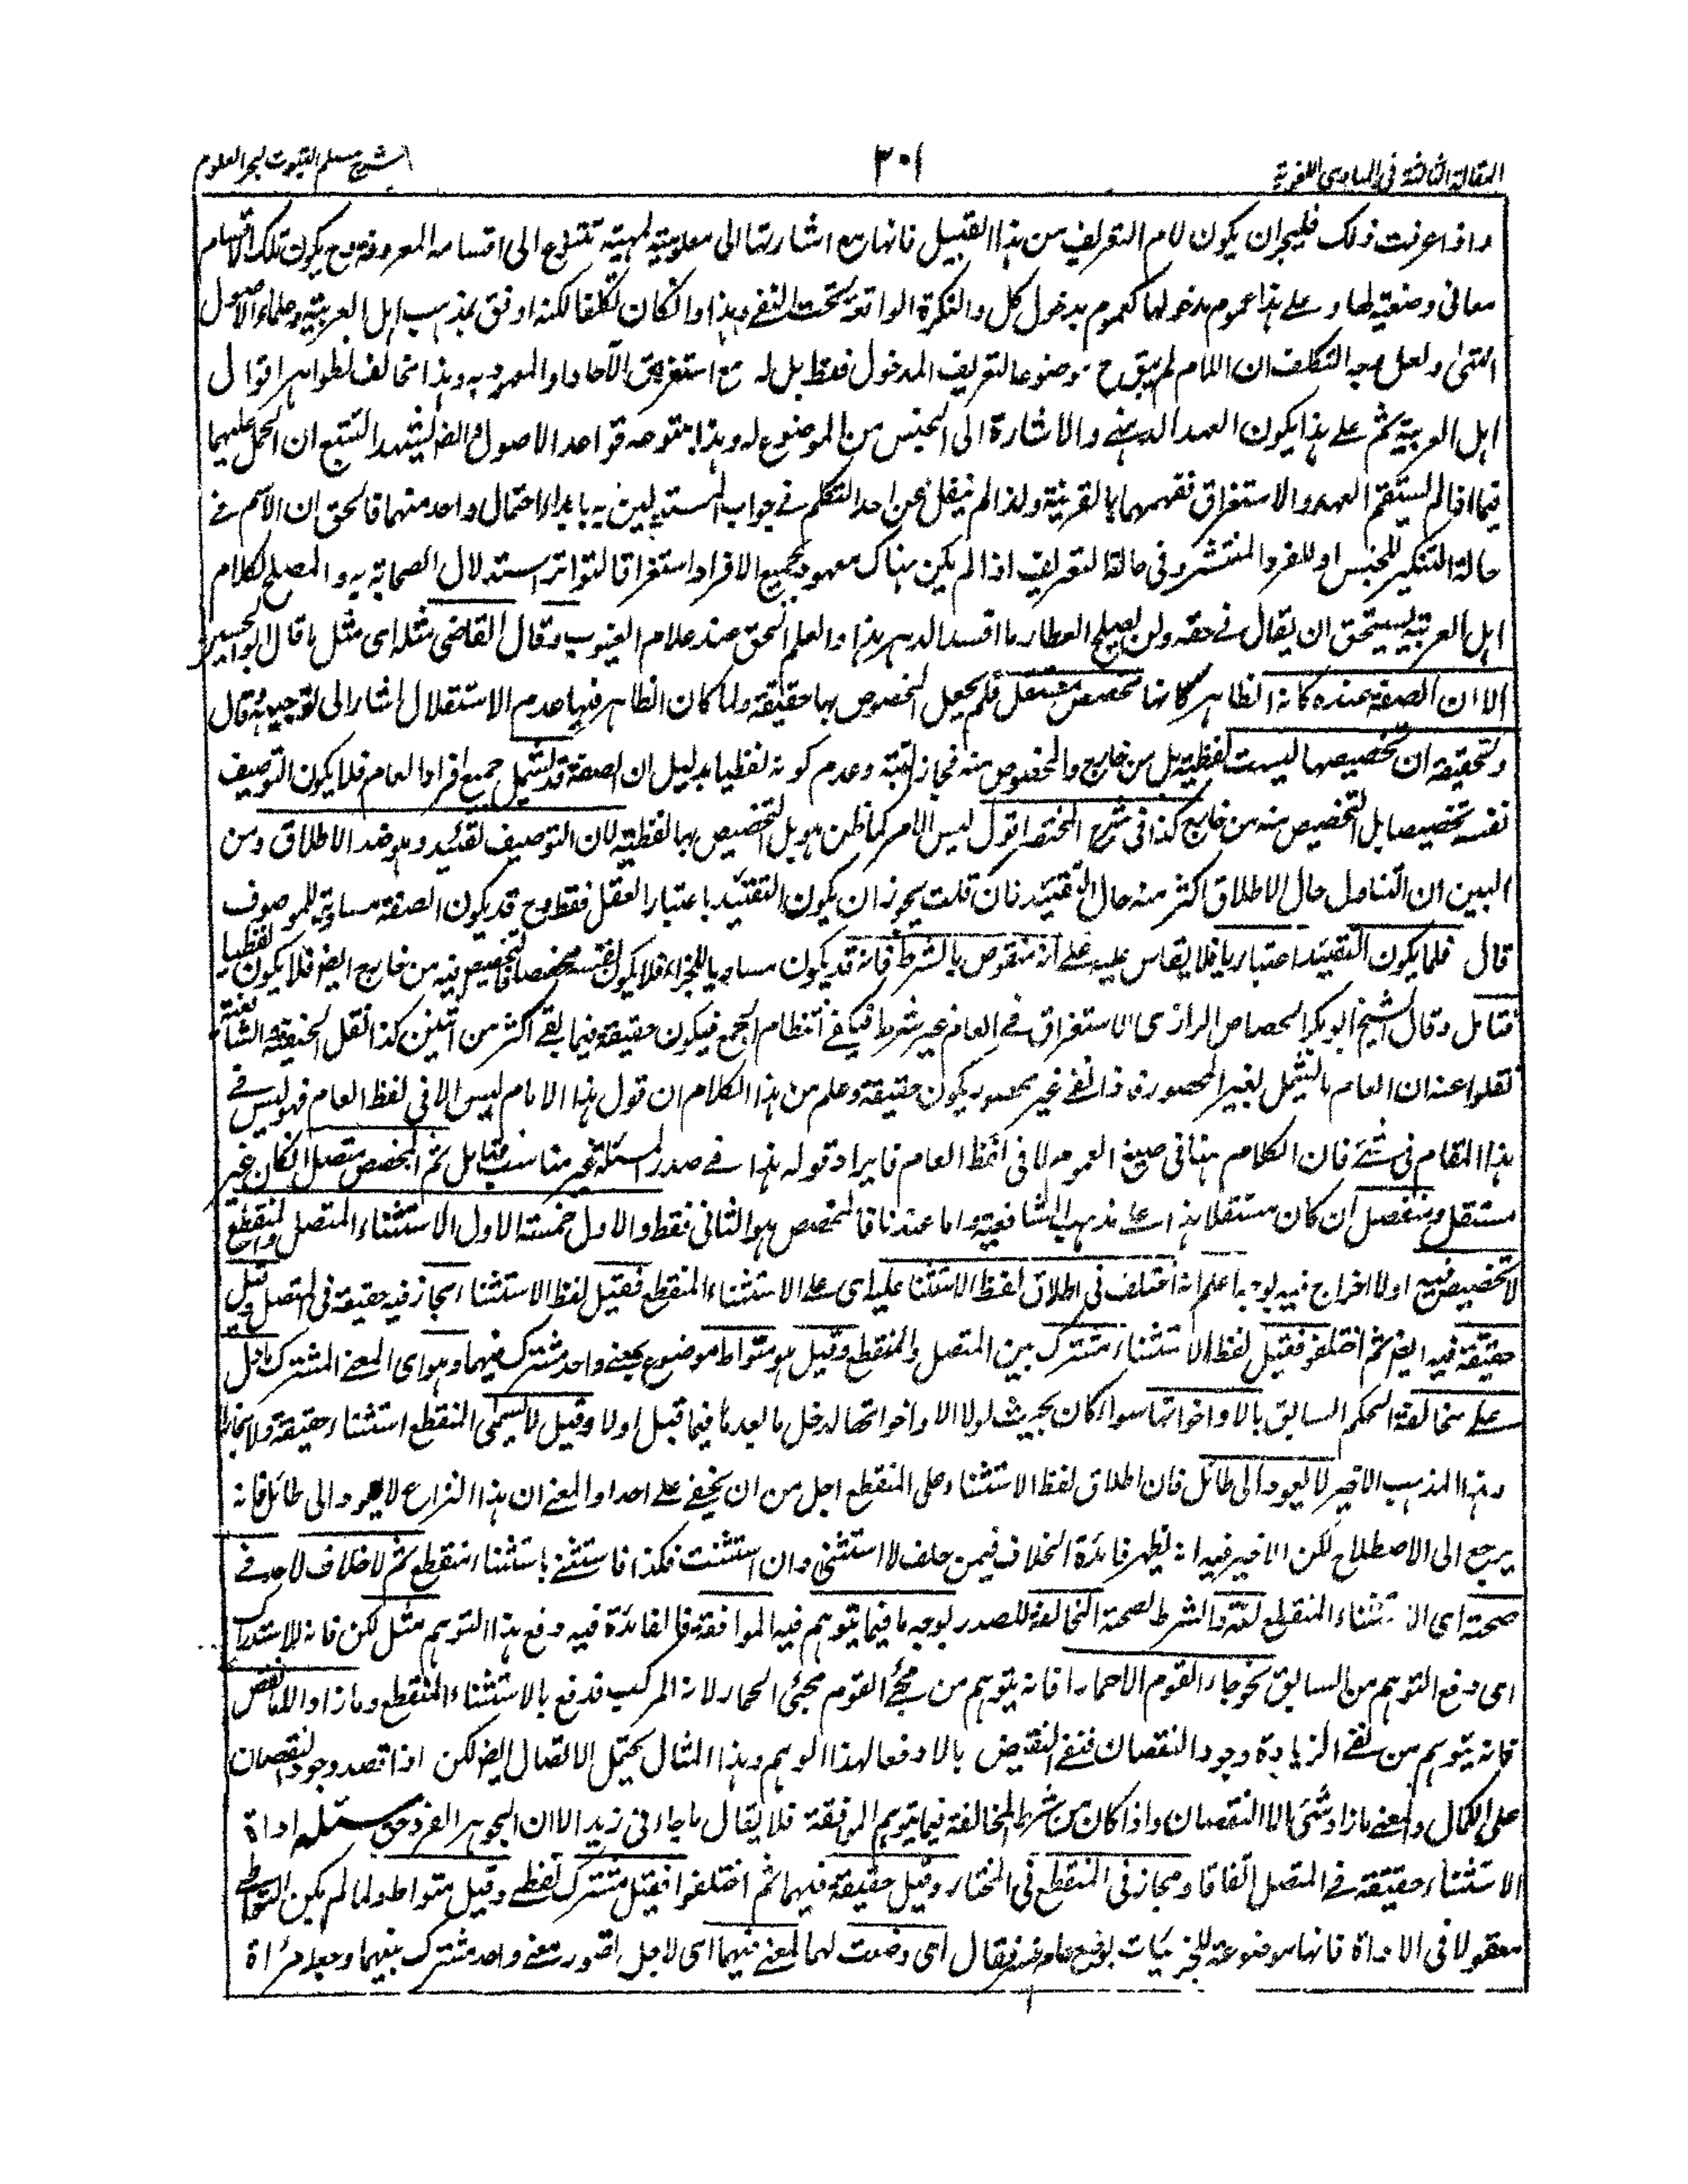 المقالة الثالثة في المبادي اللغوية
٣٠١
شرح مسلم الثبوت لبحر العلوم
واذا عرفت ذلك فليجز ان يكون لام التعريف من هذا القبيل فانها مع اشارتها الى معلومية المهية تتنوع الى اقسامه المعروفة وح يكون تلك الاقسام
معاني وضعية لها وعلى هذا عموم مدخولها كعموم مدخول كل والنكرة الواقعة تحت النفي وهذا وان كان تكلفا لكنه اوفق بمذهب اهل العربية وعلماء الاصول
انتهى ولعل وجه التكلف ان اللام لم يبق ح موضوعا لتعريف المدخول فقط بل له مع استغراق الآحاد او المعهودية وهذا مخالف لظواهر اقوال
اهل العربية ثم على هذا يكون العهد الذهني والاشارة الى الجنس من الموضوع له وهذا قواعد الاصول ايضا ليشهد التتبع ان الحمل عليهما
فيما اذا لم يستقم العهد والاستغراق ففهمهما بالقرينة ولذا لم ينقل عن احد التكلم في جواب المستدلين به بابداء احتمال واحد منهما فالحق ان الاسم في
حالة التنكير للجنس او للفرد المنتشر وفي حالة التعريف اذا لم يكن هناك معهود لجميع الافراد استغراقا لتواتر استدلال الصحابة به والمصلح لكلام
اهل العربية يستحق ان يقال في حقه ولن يصلح العطار ما افسد الدهر هذا والعلم الحق عند علام الغيوب وقال القاضي مثله اى مثل ما قال ابو الحسين
الا ان الصفة عنده كانه الظاهر كانها مخصص مستقل فلم يجعل المخصوص بها حقيقة ولما كان الظاهر فيها عدم الاستقلال اشار الى توجيهه وقال
وتحقيقه ان تخصيصها ليست لفظية بل من خارج والمخصوص منه مجاز البتة وعدم كونه لفظيا بدليل ان الصفة قد تشمل جميع افراد العام فلا يكون التوصيف
نفسه تخصيصا بل التخصيص منه من خارج كذا في شرح المختصر اقول ليس الامر كما ظن هو بل التخصيص بها لفظية لان التوصيف تقييد وهو ضد الاطلاق ومن
البين ان التناول حال الاطلاق اكثر منه حال التقييد فان قلت يجوز ان يكون التقييد باعتبار العقل فقط وح قد يكون الصفة مساوية للموصوف
قال فلما يكون التقييد اعتباريا فلا يقاس عليه على انه منقوض بالشرط فانه قد يكون مساويا للجزاء فلا يكون بنفسه مخصصا فالتخصيص فيه من خارج ايضا فلا يكون لفظيا
فتامل وقال الشيخ ابو بكر الجصاص الرازي الاستغراق في العام غير شرط فيكفي انتظام الجمع فيكون حقيقة فيما بقى اكثر من اثنين كذا نقل الحنفية والشافعية
نقلوا عنه ان العام ما يشمل لغير المحصور فاذا بقى غير محصور يكون حقيقة وعلم من هذا الكلام ان قول هذا الامام ليس الا في لفظ العام فهو ليس في
هذا المقام في شيء فان الكلام ههنا في صيغ العموم لا في لفظ العام فايراد قوله هذا في صدر المسئلة غير مناسب فتامل ثم المخصص متصل ان كان غير
مستقل ومنفصل ان كان مستقلا هذا على مذهب الشافعية واما عندنا فالمخصص هو الثاني فقط والاول خمسة الاول الاستثناء المتصل والمنقطع
لا تخصيص فيه اولا اخراج فيه بوجه اعلم انه اختلف في اطلاق لفظ الاستثناء عليه اى على الاستثناء المنقطع فقيل لفظ الاستثناء مجاز فيه حقيقة في المتصل وقيل
حقيقة فيه ايضا ثم اختلفوا فقيل لفظ الاستثناء مشترك بين المتصل والمنقطع وقيل هو متواط موضوع بمعنى واحد مشترك فيهما وهو اى المعنى المشترك ما دل
على مخالفة الحكم السابق بالا واخواتها سواء كان بحيث لولا الا واخواتها لدخل ما بعدها فيما قبل اولا وقيل لا يسمى المنقطع استثناء حقيقة ولا مجازا
وهذا المذهب الاخير لا يعود الى طائل فان اطلاق لفظ الاستثناء على المنقطع اجل من ان يخفى على احد او المعنى ان هذا النزاع لا يعود الى طائل فانه
يرجع الى الاصطلاح لكن الاخير فيه انه يظهر فائدة الخلاف فيمن حلف لا استثنى وان استثنيت فكذا فاستثنى باستثناء منقطع ثم لا خلاف لاحد في
صحته اى الاستثناء المنقطع لغة والشرط لصحته المخالفة للصدر بوجه ما فيما يتوهم فيه الموافقة فالفائدة فيه دفع هذا التوهم مثل لكن فانه للاستدراك
اى دفع التوهم من السابق نحو جاء القوم الا حمارا فانه يتوهم من مجئ القوم مجئ الحمار لانه المركب فدفع بالاستثناء المنقطع وما زاد الا ما نقص
فانه يتوهم من نفى الزيادة وجود النقصان فنفى النقيض بالا دفعا لهذا الوهم وهذا المثال يحتمل الاتصال ايضا لكن اذا قصد وجود النقصان
على الكمال والمعنى ما زاد شئ الا النقصان واذا كان من شرط المخالفة فيما يتوهم الموافقة فلا يقال ما جاءني زيد الا ان الجوهر الفرد حق مسئلة اداة
الاستثناء حقيقة في المتصل اتفاقا ومجاز في المنقطع في المختار وقيل حقيقة فيهما ثم اختلفوا فقيل مشترك لفظي وقيل متواط ولما لم يكن التواطى
معقولا في الاداة فانها موضوعة للجزئيات بوضع عام فسره فقال اى وضعت لهما لمعنى فيهما اى لاجل تصور معنى واحد مشترك بينهما وجعله مرآة